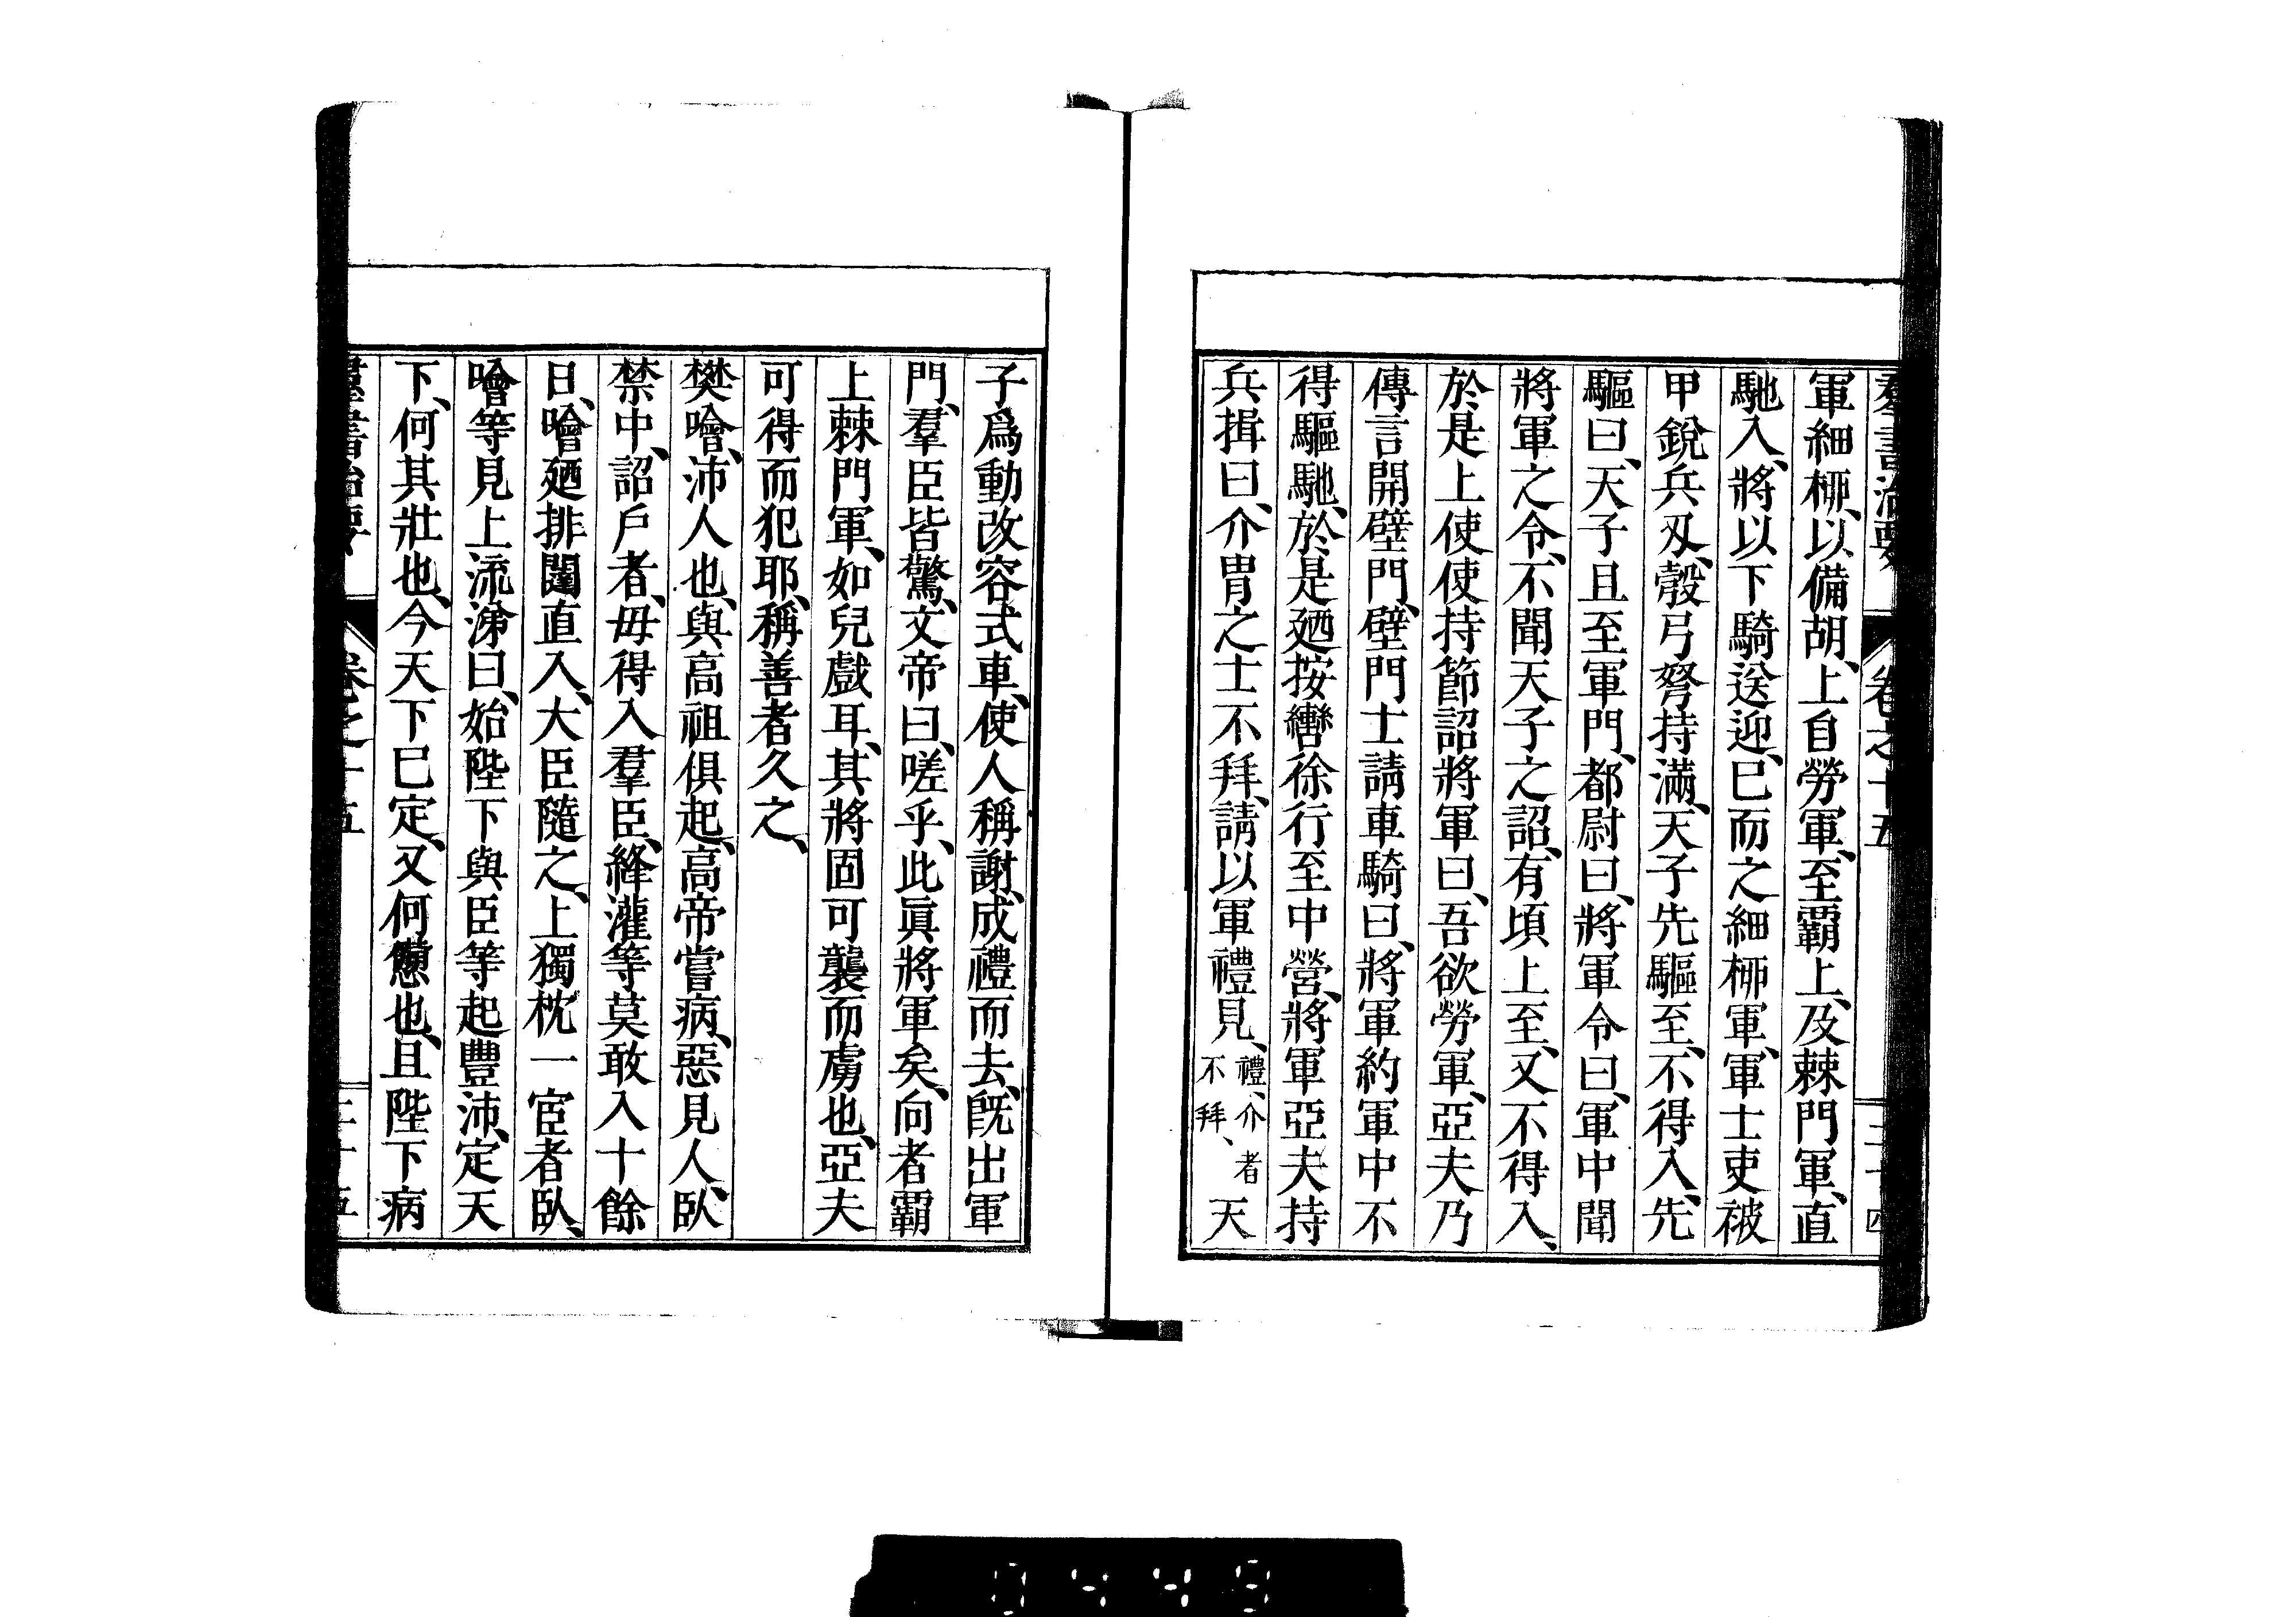 羣書治要 卷之十五 二十四
軍細柳、以備胡、上自勞軍、至霸上、及棘門軍、直
馳入、將以下騎送迎、已而之細柳軍、軍士吏被
甲銳兵刃、彀弓弩持滿、天子先驅至、不得入、先
驅曰、天子且至軍門、都尉曰、將軍令曰、軍中聞
將軍之令、不聞天子之詔、有頃上至、又不得入、
於是上使使持節詔將軍曰、吾欲勞軍、亞夫乃
傳言開壁門、壁門士請車騎曰、將軍約軍中不
得驅馳、於是廼按轡徐行至中營、將軍亞夫持
兵揖曰、介胄之士不拜、請以軍禮見、禮、介者不拜、天
子爲動改容式車、使人稱謝、成禮而去、旣出軍
門、羣臣皆驚、文帝曰、嗟乎、此眞將軍矣、向者霸
上棘門軍、如兒戲耳、其將固可襲而虜也、亞夫
可得而犯耶、稱善者久之、
樊噲、沛人也、與高祖俱起、高帝嘗病、惡見人、臥
禁中、詔戶者、毋得入羣臣、絳灌等莫敢入十餘
日、噲廼排闥直入、大臣隨之、上獨枕一宦者臥、
噲等見上流涕曰、始陛下與臣等起豐沛、定天
下、何其壯也、今天下已定、又何憊也、且陛下病
羣書治要 卷之十五 二十五